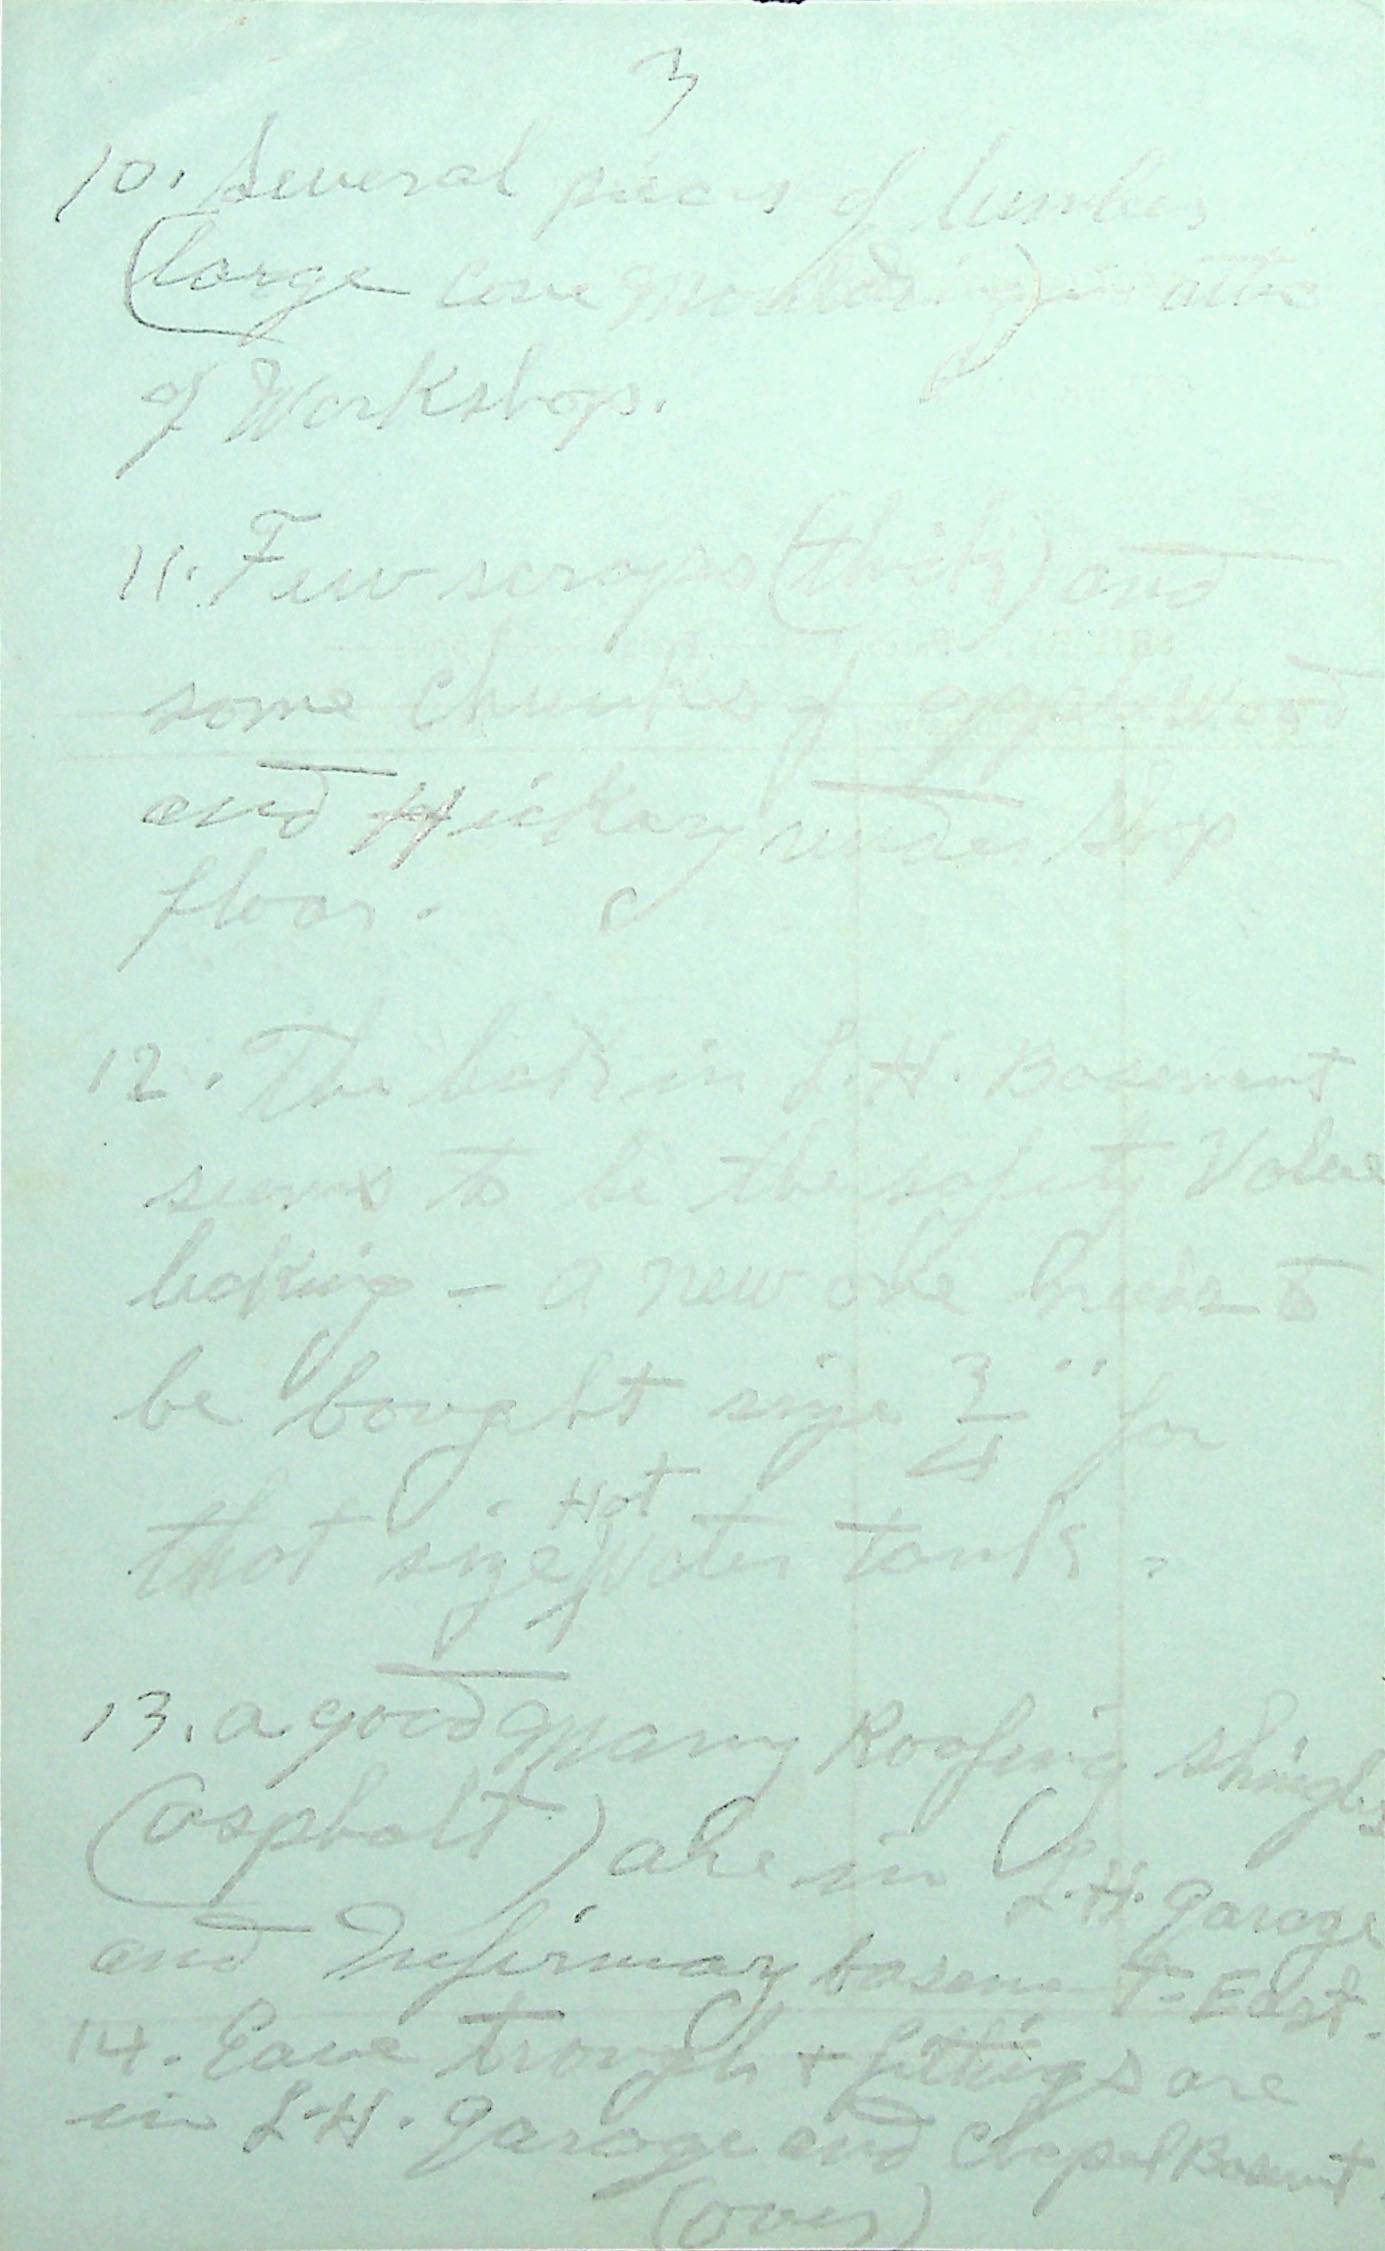 3
10. Several pieces of lumber
(large cove moulding) in attic
of Workshop.
11. Few scraps (thick) and
some chunks of applewood
and Hickory under shop
floor.
12. The leak in L.H. Basement
seems to be the safety Valve
leaking - a new one needs to
be bought size 3/4" for
that size Hot Water tank.
13. a good many Roofing shingles
(asphalt) are in L.H. garage
and Infirmary basem't-East.
14. Eave trough + fittings are
in L.H. garage and chapel Basement.
(over)